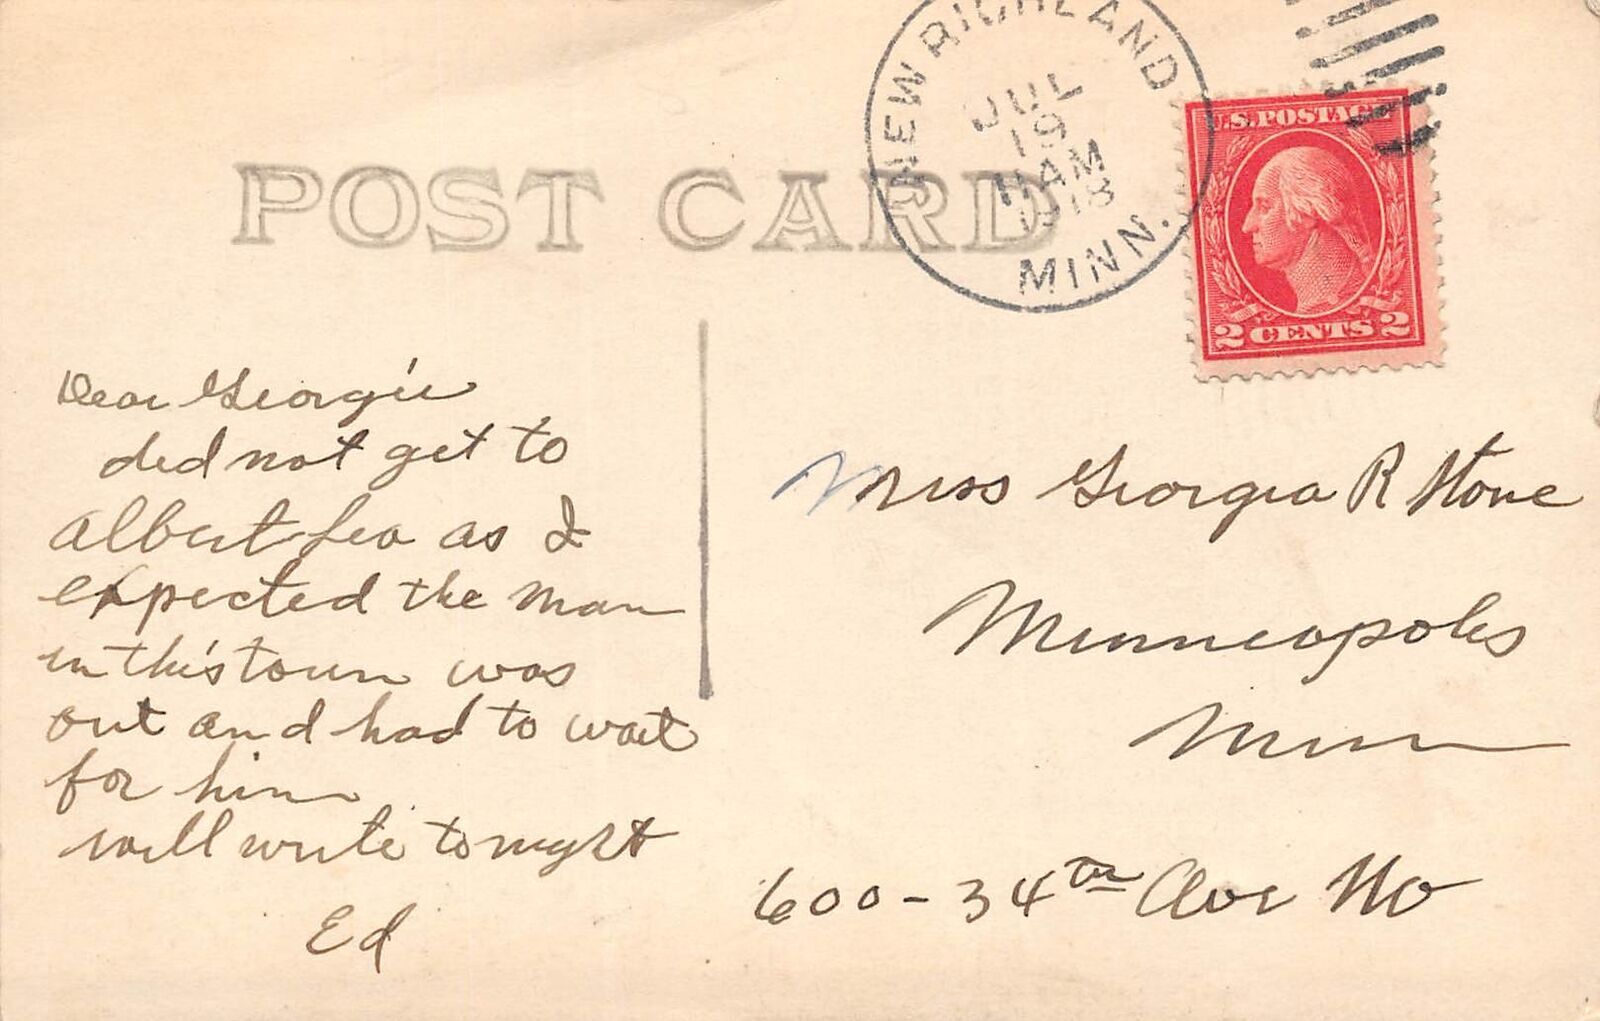 NEW RICHLAND
JUL
19
11 AM
1918
MINN.
U.S. POSTAGE
2 CENTS 2
POST CARD
Dear Georgie
did not get to
Albert Lea as I
expected the man
in this town was
out and had to wait
for him
will write tonight
Ed
Miss Georgia R Stone
Minneapolis
Minn
600-34th Ave No